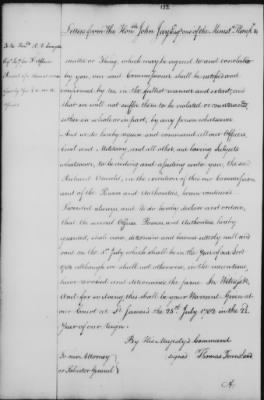 122
Letters from The Hon^ble John Jay Esq^r one of the Minist^s Plenip^o &
To the Hon^ble R. R. Livingston
mitted or Thing, which may be agreed to and concluded
by you, our said Commissioner shall be ratified and
confirmed by us in the fullest manner and extent, and
that we will not suffer them to be violated or counteracted
either in whole or in part, by any person whatsoever
And we do hereby require and command all our Officers
Civil and Military, and all other our loving Subjects
whatsoever, to be aiding and assisting unto you, the said
Richard Oswald, in the execution of this our Commission
and of the Powers and Authorities, herein contained
Provided always and We do hereby declare and ordain,
that the several Offices Powers and Authorities hereby
granted, shall cease, determine and become utterly null and
void on the 1^st July which shall be in the Year of our Lord
1783 although we shall not otherwise, in the meantime,
have revoked and determined the same. In Witness &c
And for so doing this shall be your Warrant. Given at
our Court at St James's the 25^th July 1782 in the 22
Year of our Reign.
By His Majesty's Command
signed Thomas Townshend
To our Attorney
or Solicitor General
A